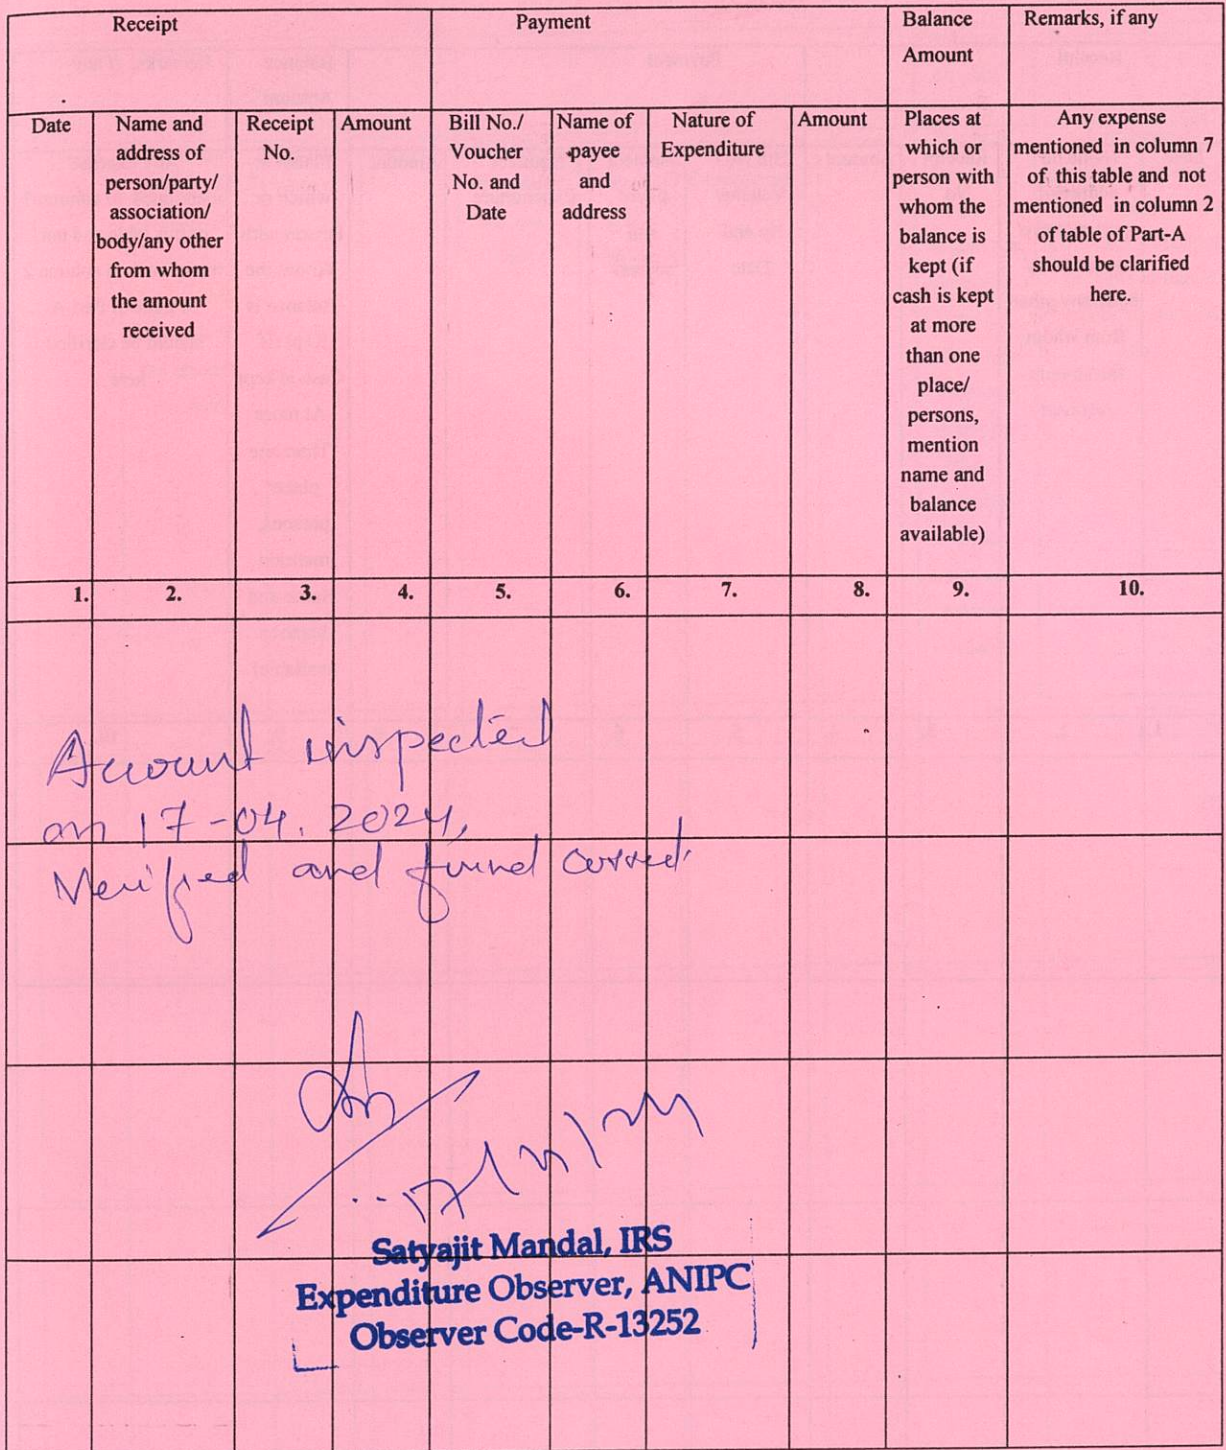 Receipt
Payment
Balance
Amount
Remarks, if any
Date
Name and
address of
person/party/
association/
body/any other
from whom
the amount
received
Receipt
No.
Amount
Bill No./
Voucher
No. and
Date
Name of
payee
and
address
Nature of
Expenditure
Amount
Places at
which or
person with
whom the
balance is
kept (if
cash is kept
at more
than one
place/
persons,
mention
name and
balance
available)
Any expense
mentioned in column 7
of this table and not
mentioned in column 2
of table of Part-A
should be clarified
here.
1. 2. 3. 4. 5. 6. 7. 8. 9. 10.
Account inspected
on 17-04.2024,
Verified and found correct.
Satyajit Mandal, IRS
Expenditure Observer, ANIPC
Observer Code-R-13252